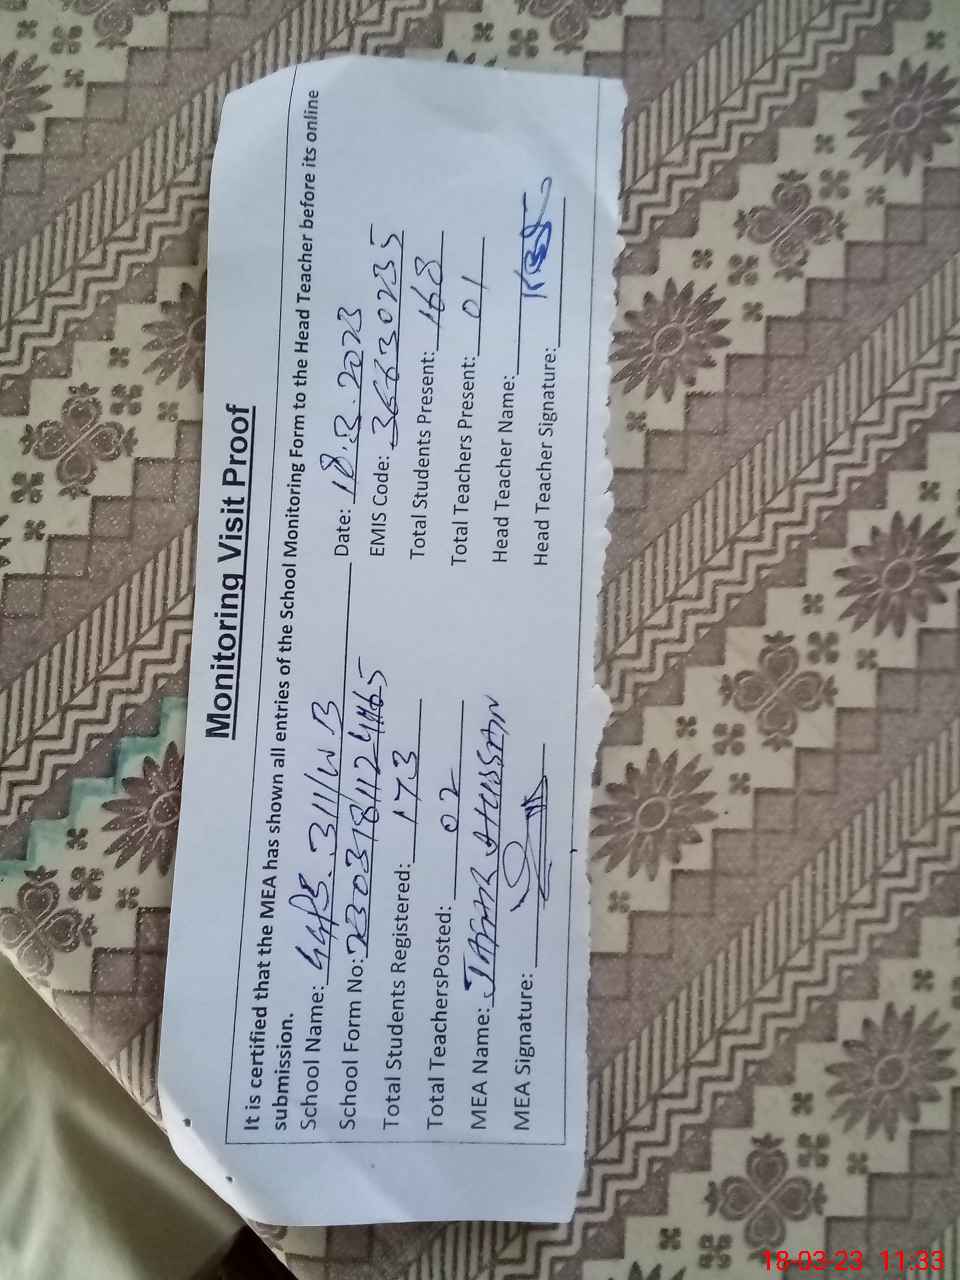 Monitoring Visit Proof
It is certified that the MEA has shown all entries of the School Monitoring Form to the Head Teacher before its online
submission.
School Name: GGPS. 311/WB Date: 18.3.2023
School Form No: EMIS Code: 36630235
Total Students Registered: 173 Total Students Present: 168
Total TeachersPosted: 02 Total Teachers Present: 01
MEA Name: JAFAR HUSSAN Head Teacher Name:
MEA Signature: Head Teacher Signature:
18-03-23 11:33